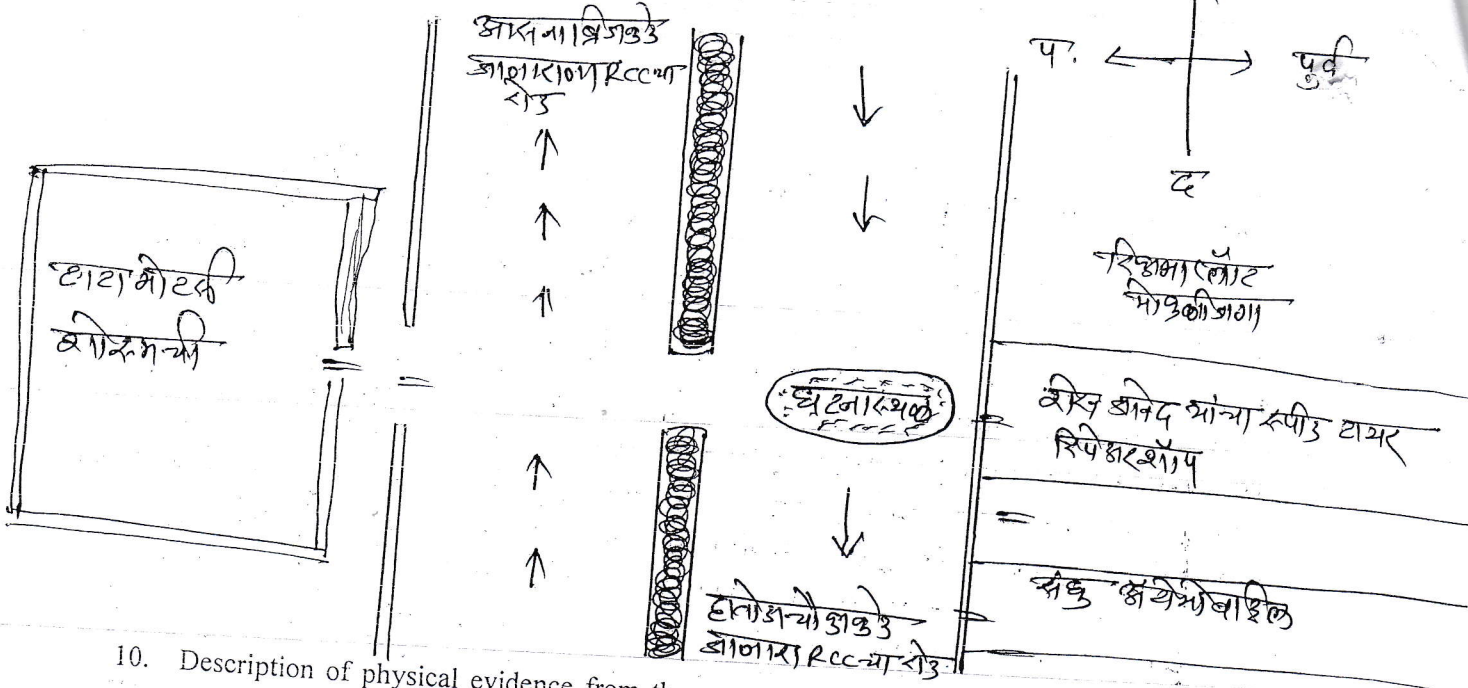 आसना ब्रिजकडे
जाणारा RCC चा
रोड
प.
पुर्व
द
टाटा मोटर्स
शोरूमची
रिकामा प्लॉट
मोकळी जागा
घटनास्थळ
शेख जावेद यांचा स्पीड टायर
रिपेअर शॉप
संधु अॅटोमोबाईल
हातोडा चौकाकडे
जाणारा RCC चा रोड
10. Description of physical evidence from the